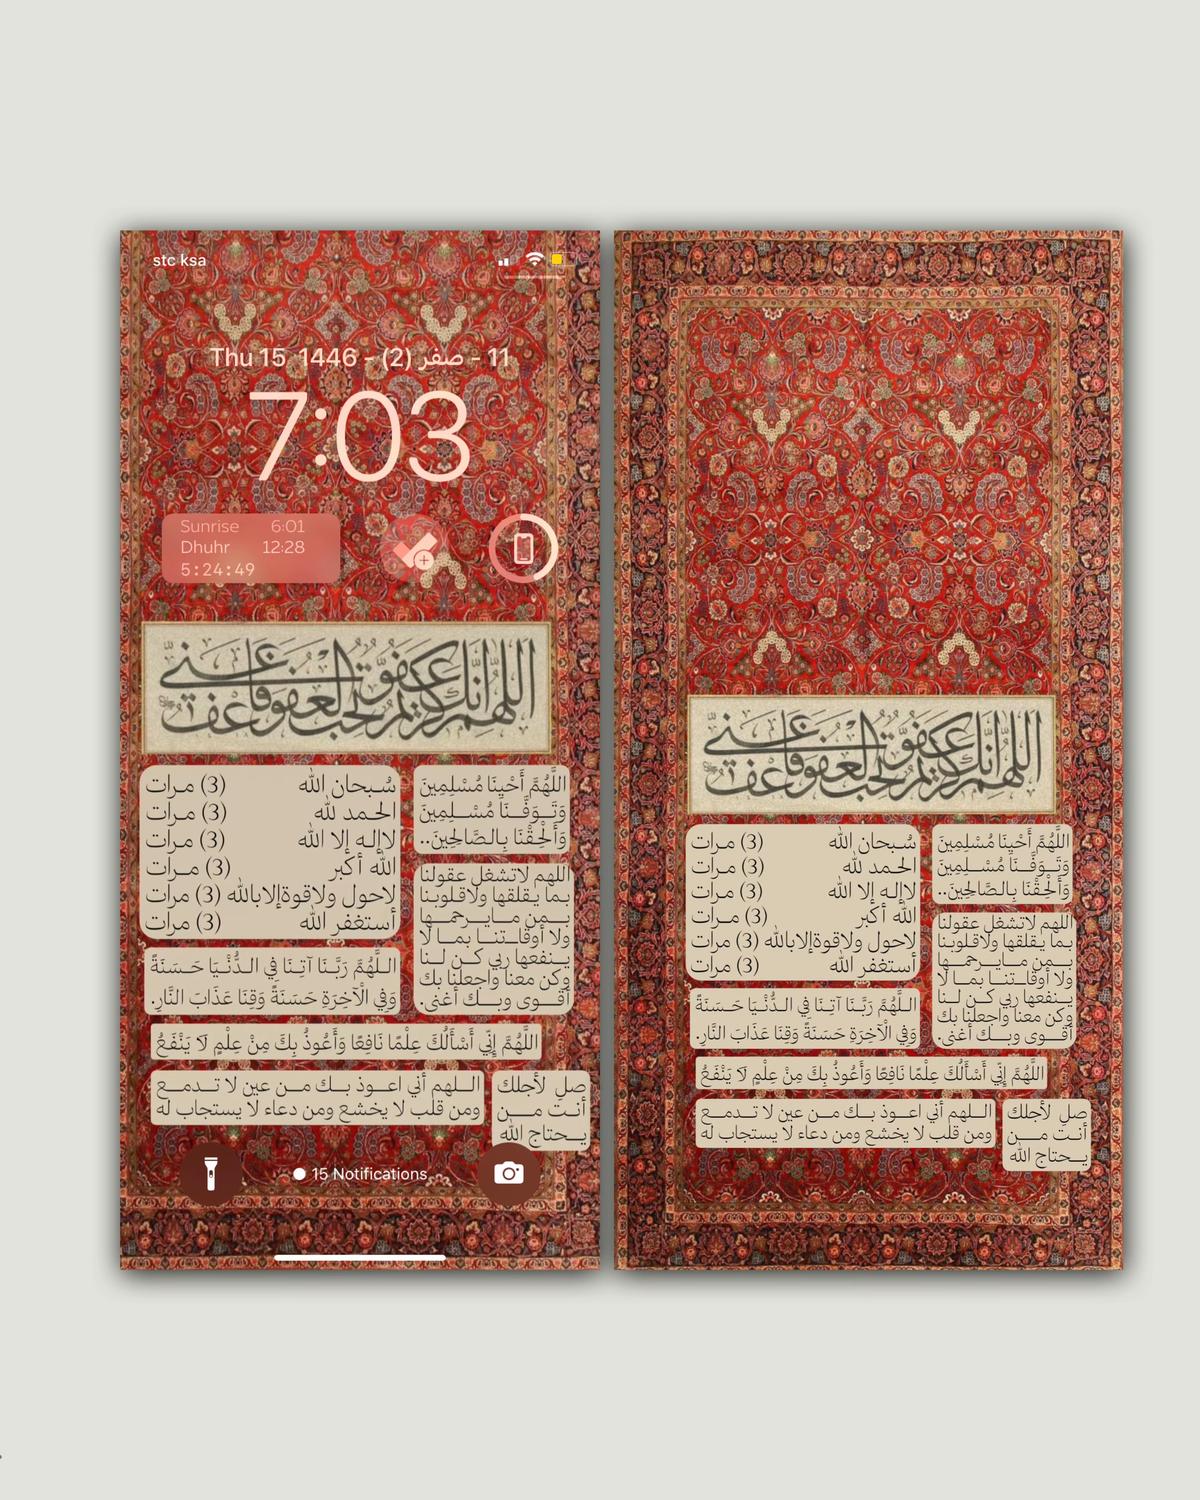 stc ksa
Thu 15 1446 - (2) صفر - 11
7:03
Sunrise 6:01
Dhuhr 12:28
5:24:49
اللهم إنك عفو كريم تحب العفو فاعف عني
سُبحان الله (3) مرات
الحمد لله (3) مرات
لاإله إلا الله (3) مرات
الله أكبر (3) مرات
لاحول ولاقوةإلابالله (3) مرات
أستغفر الله (3) مرات
اللَّهُمَّ أَحْيِنَا مُسْلِمِينَ
وَتَوَفَّنَا مُسْلِمِينَ
وَأَلْحِقْنَا بِالصَّالِحِينَ..
اللهم لاتشغل عقولنا
بما يقلقها ولاقلوبنا
بمن مايرحمها
ولا أوقاتنا بما لا
ينفعها ربي كن لنا
وكن معنا واجعلنا بك
أقوى وبك أغنى.
اللَّهُمَّ رَبَّنَا آتِنَا فِي الدُّنْيَا حَسَنَةً
وَفِي الْآخِرَةِ حَسَنَةً وَقِنَا عَذَابَ النَّارِ.
اللَّهُمَّ إِنِّي أَسْأَلُكَ عِلْمًا نَافِعًا وَأَعُوذُ بِكَ مِنْ عِلْمٍ لَا يَنْفَعُ
اللهم أني اعوذ بك من عين لا تدمع
ومن قلب لا يخشع ومن دعاء لا يستجاب له
صلِ لأجلك
أنت من
يحتاج الله
15 Notifications
اللهم إنك عفو كريم تحب العفو فاعف عني
سُبحان الله (3) مرات
الحمد لله (3) مرات
لاإله إلا الله (3) مرات
الله أكبر (3) مرات
لاحول ولاقوةإلابالله (3) مرات
أستغفر الله (3) مرات
اللَّهُمَّ أَحْيِنَا مُسْلِمِينَ
وَتَوَفَّنَا مُسْلِمِينَ
وَأَلْحِقْنَا بِالصَّالِحِينَ..
اللهم لاتشغل عقولنا
بما يقلقها ولاقلوبنا
بمن مايرحمها
ولا أوقاتنا بما لا
ينفعها ربي كن لنا
وكن معنا واجعلنا بك
أقوى وبك أغنى.
اللَّهُمَّ رَبَّنَا آتِنَا فِي الدُّنْيَا حَسَنَةً
وَفِي الْآخِرَةِ حَسَنَةً وَقِنَا عَذَابَ النَّارِ.
اللَّهُمَّ إِنِّي أَسْأَلُكَ عِلْمًا نَافِعًا وَأَعُوذُ بِكَ مِنْ عِلْمٍ لَا يَنْفَعُ
اللهم أني اعوذ بك من عين لا تدمع
ومن قلب لا يخشع ومن دعاء لا يستجاب له
صلِ لأجلك
أنت من
يحتاج الله